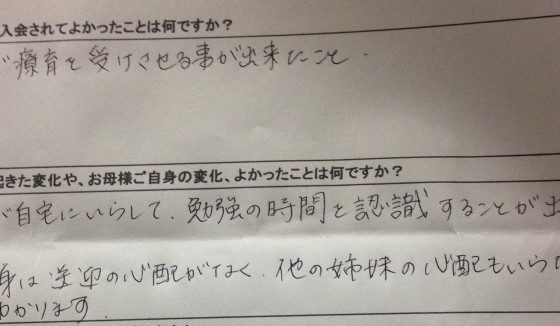 入会されてよかったことは何ですか？
で療育を受けさせる事が出来たこと.
起きた変化や、お母様ご自身の変化、よかったことは何ですか？
が自宅にいらして、勉強の時間と認識することが出
身は送迎の心配がなく、他の姉妹の心配もいらな
わかります.